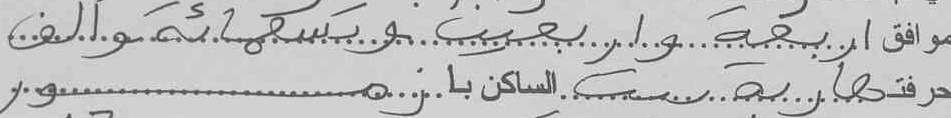 موافق اربعة و اربعين و تسعمائة والف
حرفتها ربة بيت الساكن بازمور